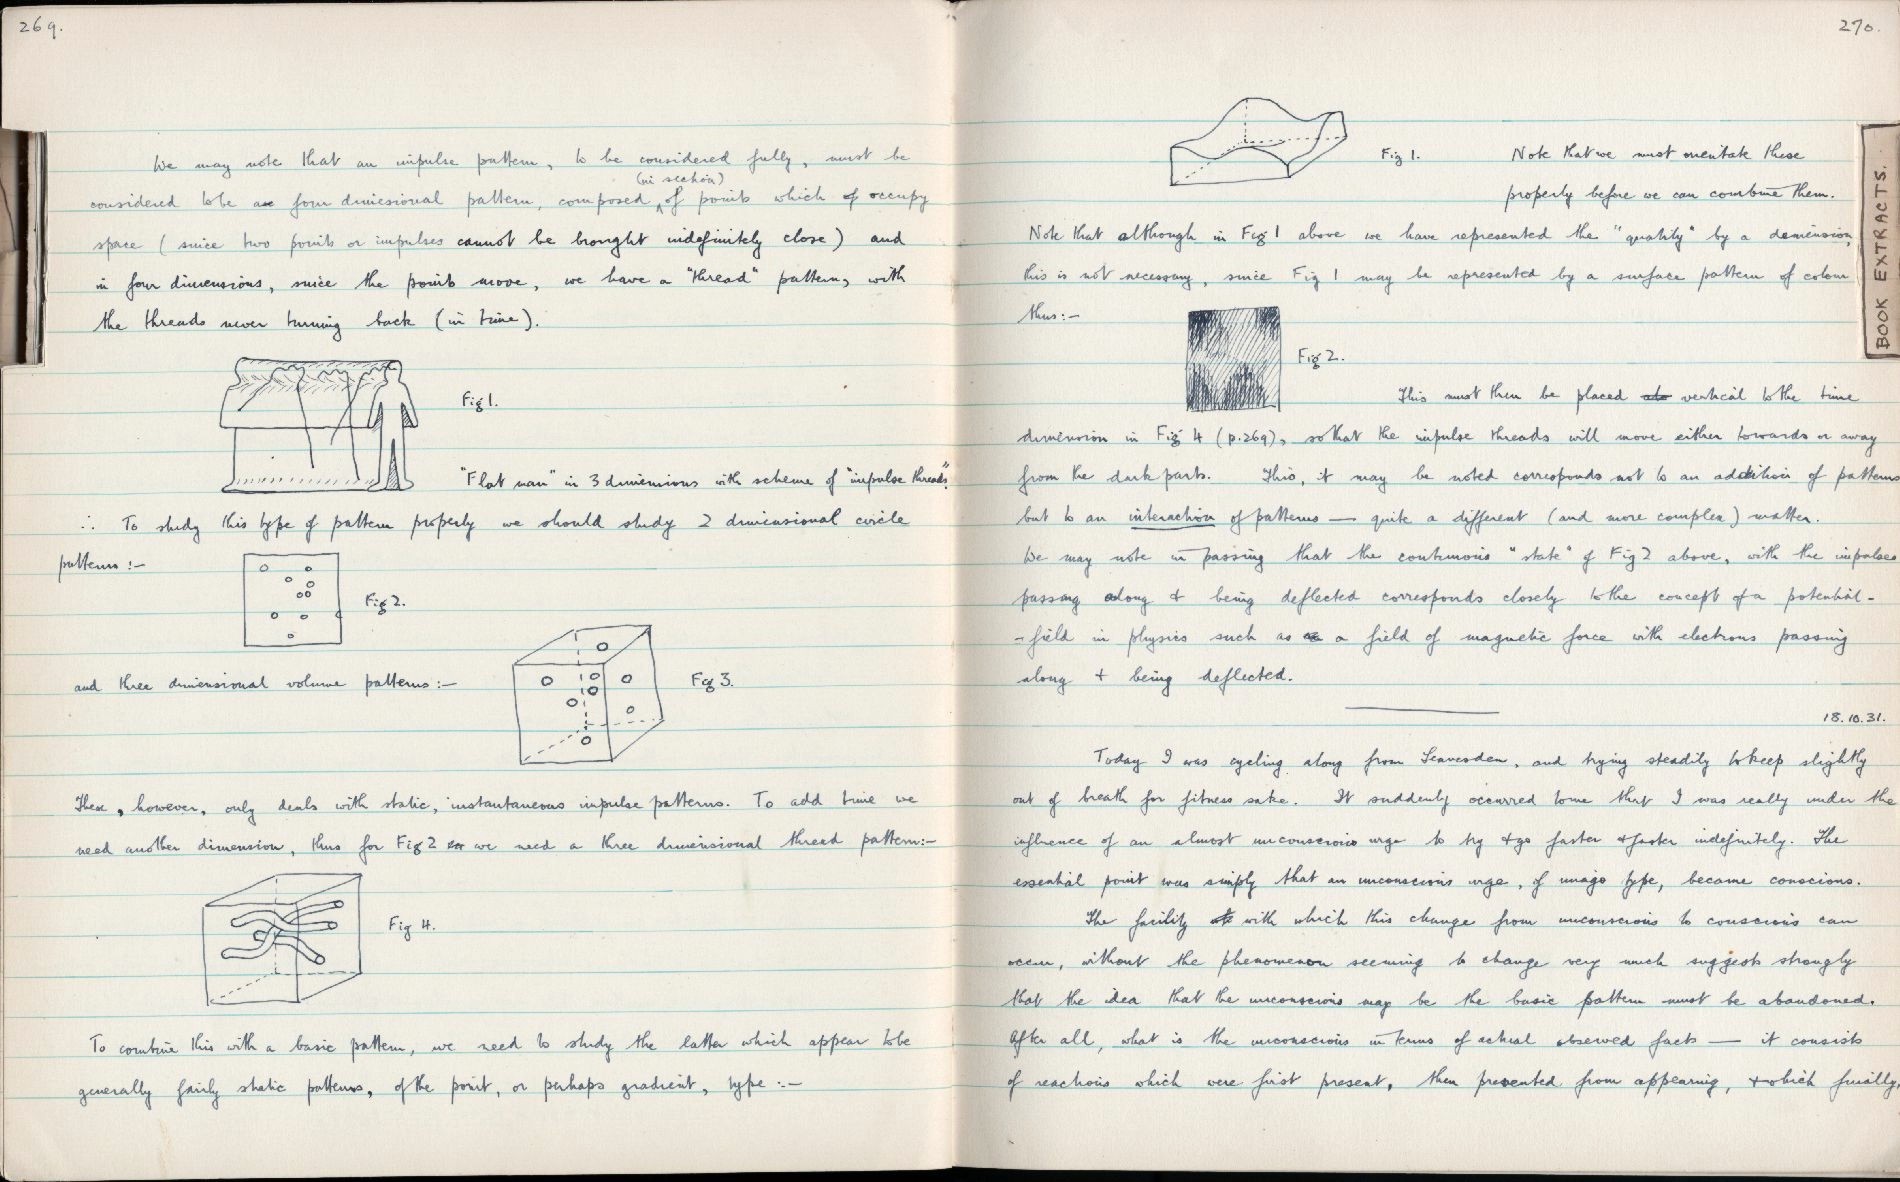 269.
We may note that an impulse pattern, to be considered fully, must be
(in section)
considered to be a four dimesional pattern, composed of points which occupy
space (since two points or impulses cannot be brought indefinitely close) and
in four dimensions, since the points move, we have a "thread" pattern, with
the threads never turning back (in time).
Fig 1.
"Flat man" in 3 dimensions with scheme of "impulse threads".
∴ To study this type of pattern properly we should study 2 dimensional circle
patterns :—
Fig 2.
and three dimensional volume patterns:—
Fig 3.
These, however, only deals with static, instantaneous impulse patterns. To add time we
need another dimension, thus for Fig 2 we need a three dimensional thread pattern:—
Fig 4.
To combine this with a basic pattern, we need to study the latter which appear to be
generally fairly static patterns, of the point, or perhaps gradient, type :—
270.
Fig 1.
Note that we must orientate these
properly before we can combine them.
Note that although in Fig 1 above we have represented the "quality" by a demension,
this is not necessary, since Fig 1 may be represented by a surface pattern of colour
thus:—
Fig 2.
This must then be placed vertical to the time
dimension in Fig 4 (p.269), so that the impulse threads will move either towards or away
from the dark parts. This, it may be noted corresponds not to an addition of patterns
but to an interaction of patterns — quite a different (and more complex) matter.
We may note in passing that the continuous "state" of Fig 2 above, with the impulses
passing along & being deflected corresponds closely to the concept of a potential-
-field in physics such as a field of magnetic force with electrons passing
along & being deflected.
18.10.31.
Today I was cycling along from Leavesden, and trying steadily to keep slightly
out of breath for fitness sake. It suddenly occurred to me that I was really under the
influence of an almost unconscious urge to try & go faster & faster indefinitely. The
essential point was simply that an unconscious urge, of imago type, became conscious.
The facility with which this change from unconscious to conscious can
occur, without the phenomenon seeming to change very much suggests strongly
that the idea that the unconscious may be the basic pattern must be abandoned.
After all, what is the unconscious in terms of actual observed facts — it consists
of reactions which were first present, then prevented from appearing, & which finally,
BOOK EXTRACTS.